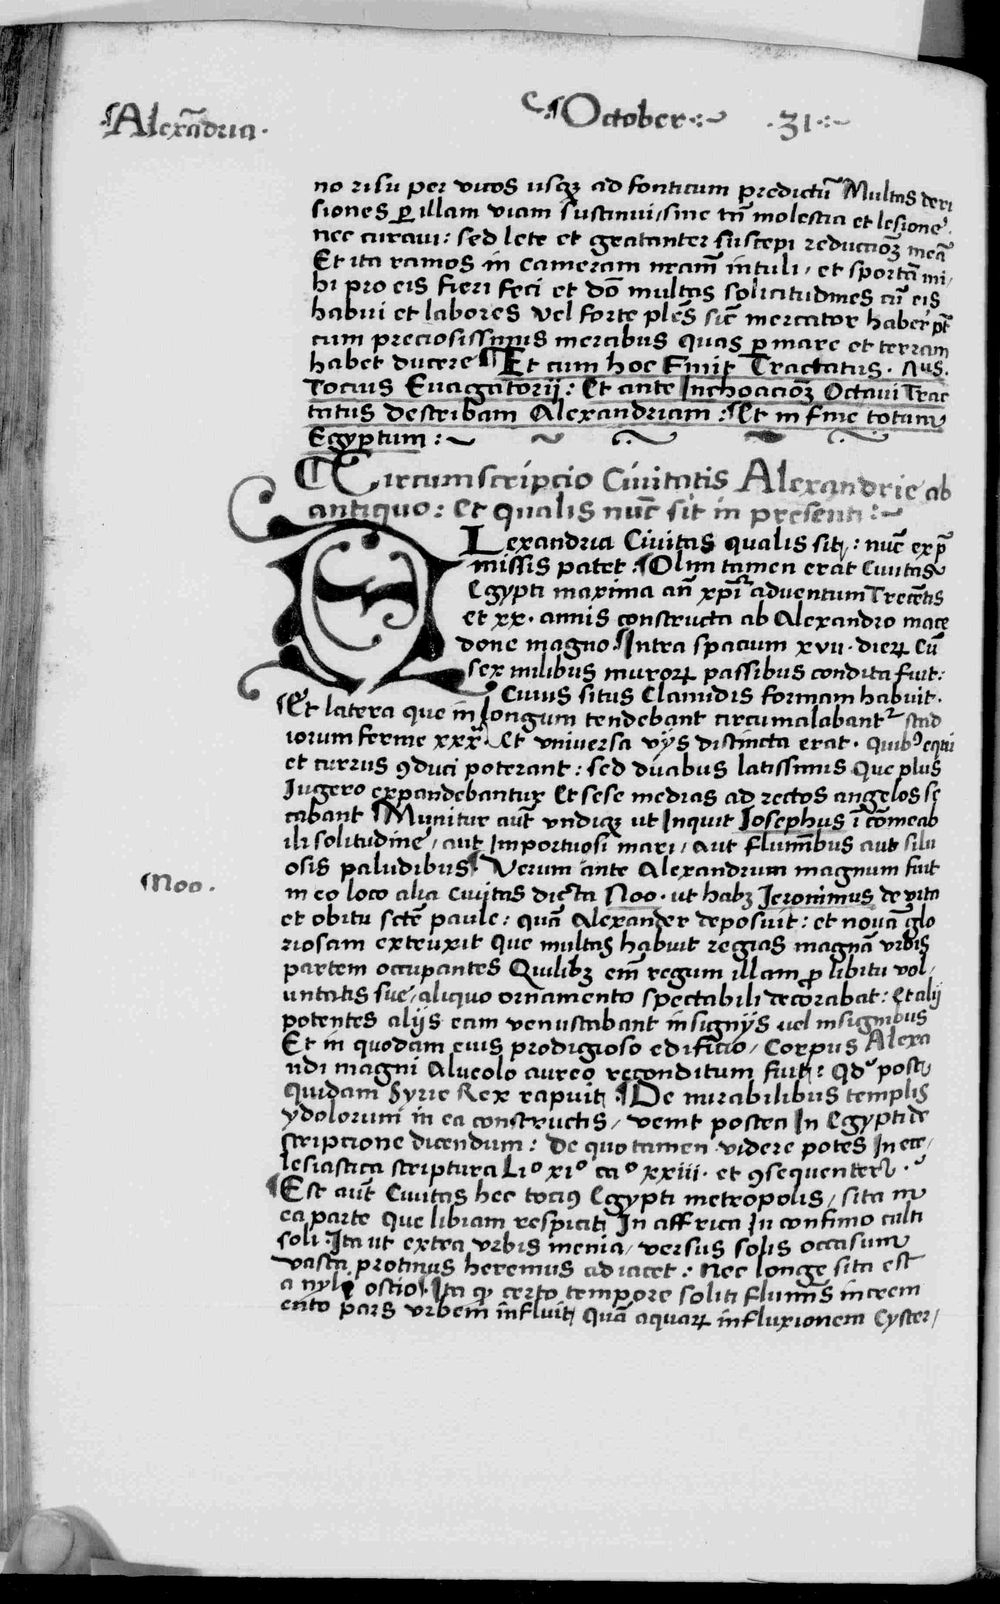 Alexãdria.
October 31
no risu per vicos usqꝫ ad fonticum predictũ Multas deri
siones ꝑ illam viam sustinui / sine tñ molestia et lesione.
nec curavi: sed lete et gratanter suscepi reductioꝫ meã
Et ita ramos in cameram nr̃am intuli / et sportã mi /
hi pro eis fieri feci et dõ multas solicitudines cũ eis
habui et labores vel forte ples sic̃ mercator haber̃ pt̃
cum preciosissimis mercibus quas ꝑ mare et terram
habet ducere ¶ Et cum hoc Finit Tractatus.
Tocius Evagatorij: Et ante Inchoacioꝫ Octavi Trac
tatus describam Alexandriam: ¶ Et in fine totam
Egyptum:
Circumscripcio Civitatis Alexandrie ab
antiquo: Et qualis nũc sit in presenti:
Lexandria Civitas qualis sit: nũc exp̃
missis patet ¶ Olim tamen erat Civitas
Egypti maxima añ xp̃i adventum Trecẽtis
et xx. annis constructa ab Alexandro mace
done magno. Intra spacium xvii. dieꝝ Cũ
sex milibus muroꝝ passibus condita fuit:
Cuius situs Clamidis formam habuit.
Et latera que in longum tendebant circumalabantᷣ stad
iorum ferme xxx. Et universa vijs distincta erat. Quibꝰ equi
et currus ꝯduci poterant: sed duabus latissimis Que plus
Iugero expandebantur Et sese medias ad rectos angelos se
cabant ¶ Munitur aut̃ undiqꝫ ut Inquit Iosephus ĩ cõmeab
ili solitudine / aut Importuosi mari / aut fluminibus aut silu
osis paludibus ¶ Verum ante Alexandrum magnum fuit
Noo.
in eo loco alia Civitas dicta Noo. ut habꝫ Ieronimus de vita
et obitu sctẽ paule: quã Alexander deposuit: et novã glo
riosam extruxit que multas habuit regias magnã urbis
partem occupantes Quilibꝫ eñ regum illam ꝓ libitu vol /
untatis sue / aliquo ornamento spectabili decorabat: Et alij
potentes alijs eam venustabant insignijs vel insignibus
Et in quodam eius prodigioso edificio / Corpus Alexa
ndri magni Alveolo aureo reconditum fuit: Qd᷒ postea
quidam Syrie Rex rapuit ¶ De mirabilibus templis
ydolorum in ea constructis / venit postea In Egypti de
scripcione dicendum: De quo tamen videre potes In ecc /
lesiastica scriptura Liº xiº caº xxiii. et ꝯsequenter.
¶ Est aut̃ Civitas hec tociꝰ Egypti metropolis / sita in
ea parte que libiam respicit In affrica In confinio culti
soli. Ita ut extra urbis menia / versus solis occasum
vasta protinus heremus adiacet: Nec longe sita est
a nyli ostio. Ita ꝙ certo tempore soliti fluminis increm
ento pars urbem influit Quã aquaꝝ influxionem Cyster /